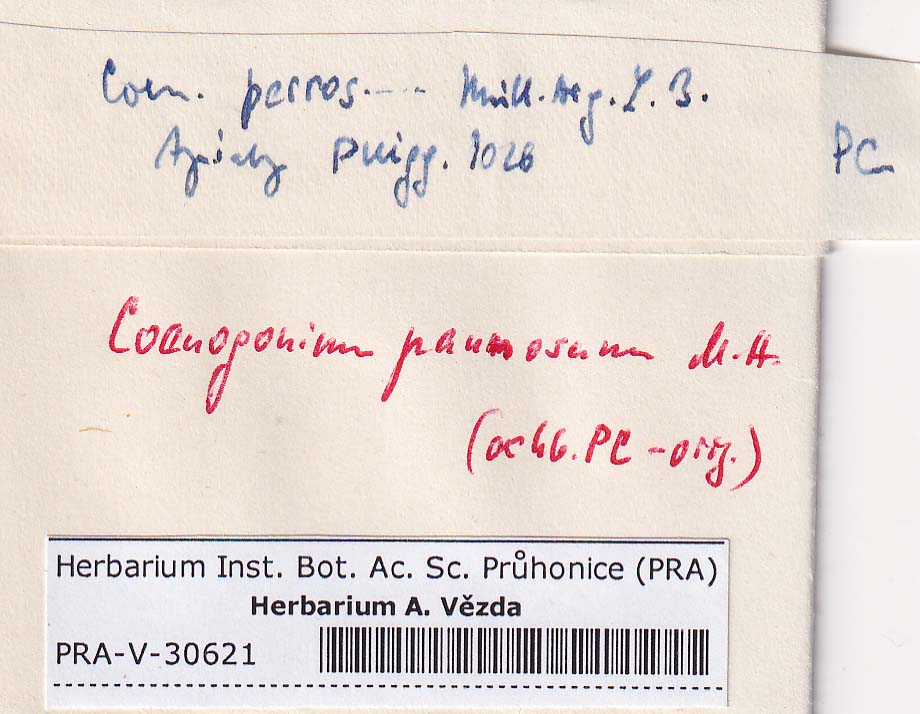 Coen. perros.--- Müll. Arg. L. B.
Apiahy Puigg. 1026 PC
Coenogonium pannosum M.A.
(ex hb. PC - orig.)
Herbarium Inst. Bot. Ac. Sc. Průhonice (PRA)
Herbarium A. Vězda
PRA-V-30621